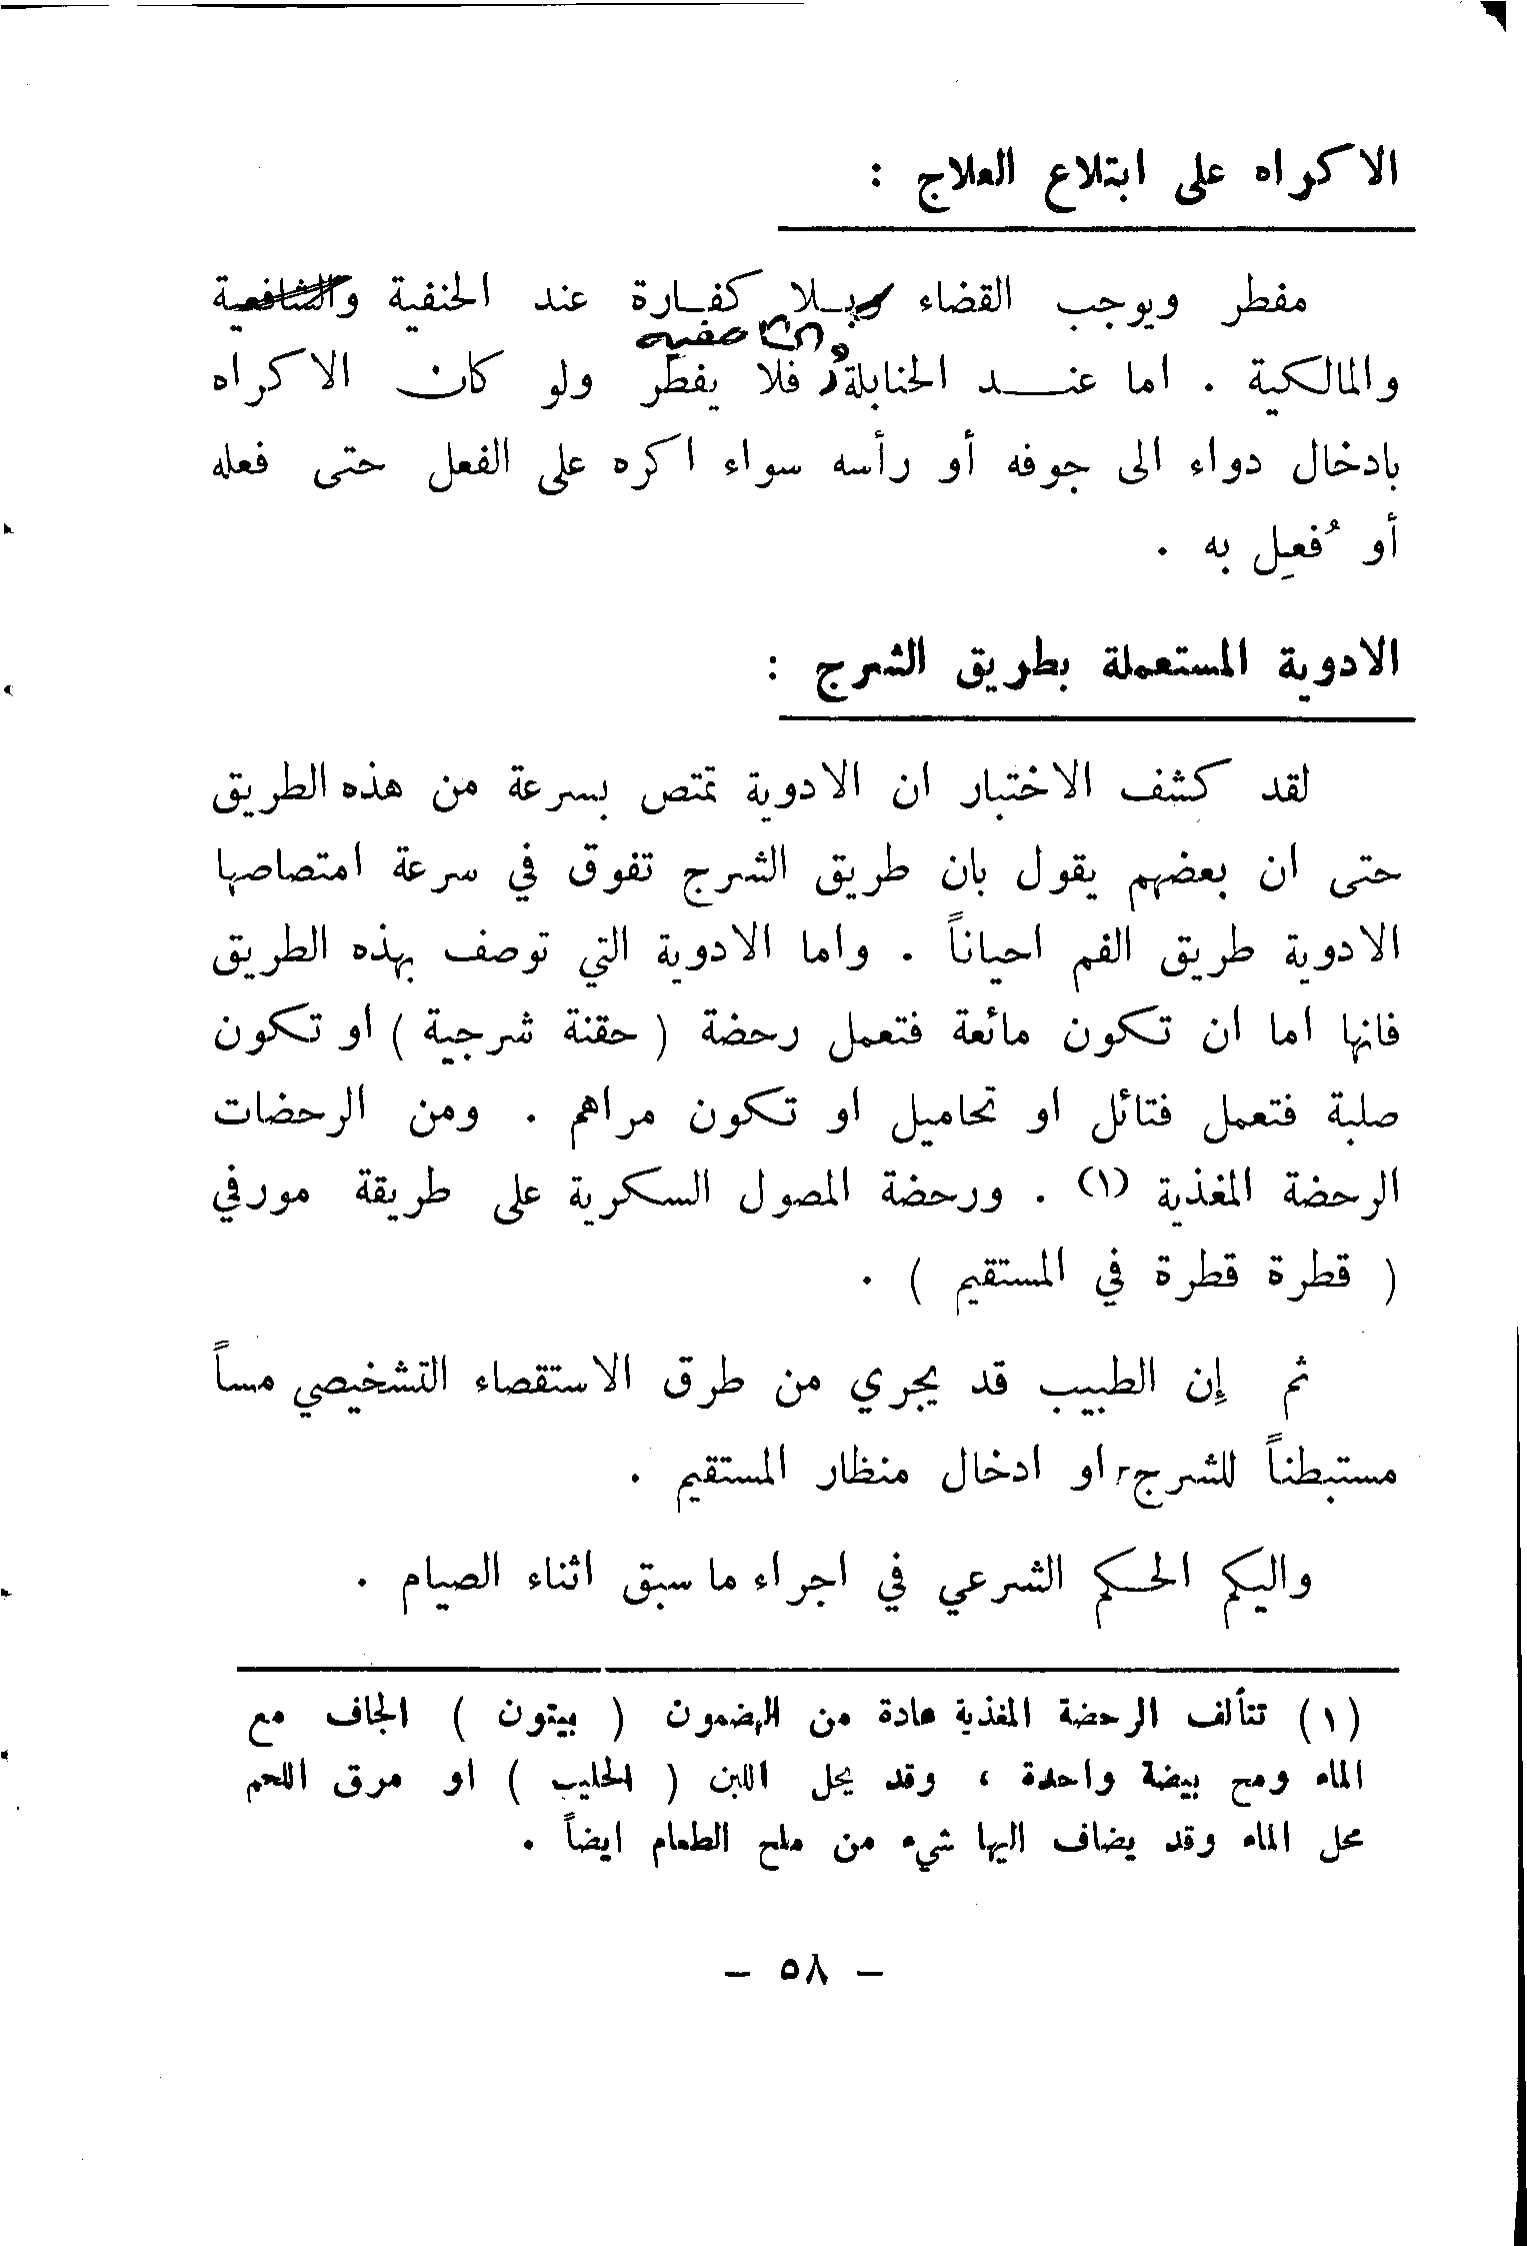 الاكراه على ابتلاع العلاج :
مفطر ويوجب القضاء وبلا كفارة عند الحنفية والشافعية
والشافعية
والمالكية . اما عند الحنابلة فلا يفطر ولو كان الاكراه
بادخال دواء الى جوفه أو رأسه سواء اكره على الفعل حتى فعله
أو فُعِل به .
الادوية المستعملة بطريق الشرج :
لقد كشف الاختبار ان الادوية تمتص بسرعة من هذه الطريق
حتى ان بعضهم يقول بان طريق الشرج تفوق في سرعة امتصاصها
الادوية طريق الفم احياناً . واما الادوية التي توصف بهذه الطريق
فانها اما ان تكون مائعة فتعمل رحضة ( حقنة شرجية ) او تكون
صلبة فتعمل فتائل او تحاميل او تكون مراهم . ومن الرحضات
الرحضة المغذية (١) . ورحضة المصول السكرية على طريقة مورفي
( قطرة قطرة في المستقيم ) .
ثم إن الطبيب قد يجري من طرق الاستقصاء التشخيصي مساً
مستبطناً للشرج او ادخال منظار المستقيم .
واليكم الحكم الشرعي في اجراء ما سبق اثناء الصيام .
(١) تتألف الرحضة المغذية عادة من الهضمون ( بيتون ) الجاف مع
الماء ومح بيضة واحدة ، وقد يحل اللبن ( الحليب ) او مرق اللحم
محل الماء وقد يضاف اليها شيء من ملح الطعام ايضاً .
- ٥٨ -